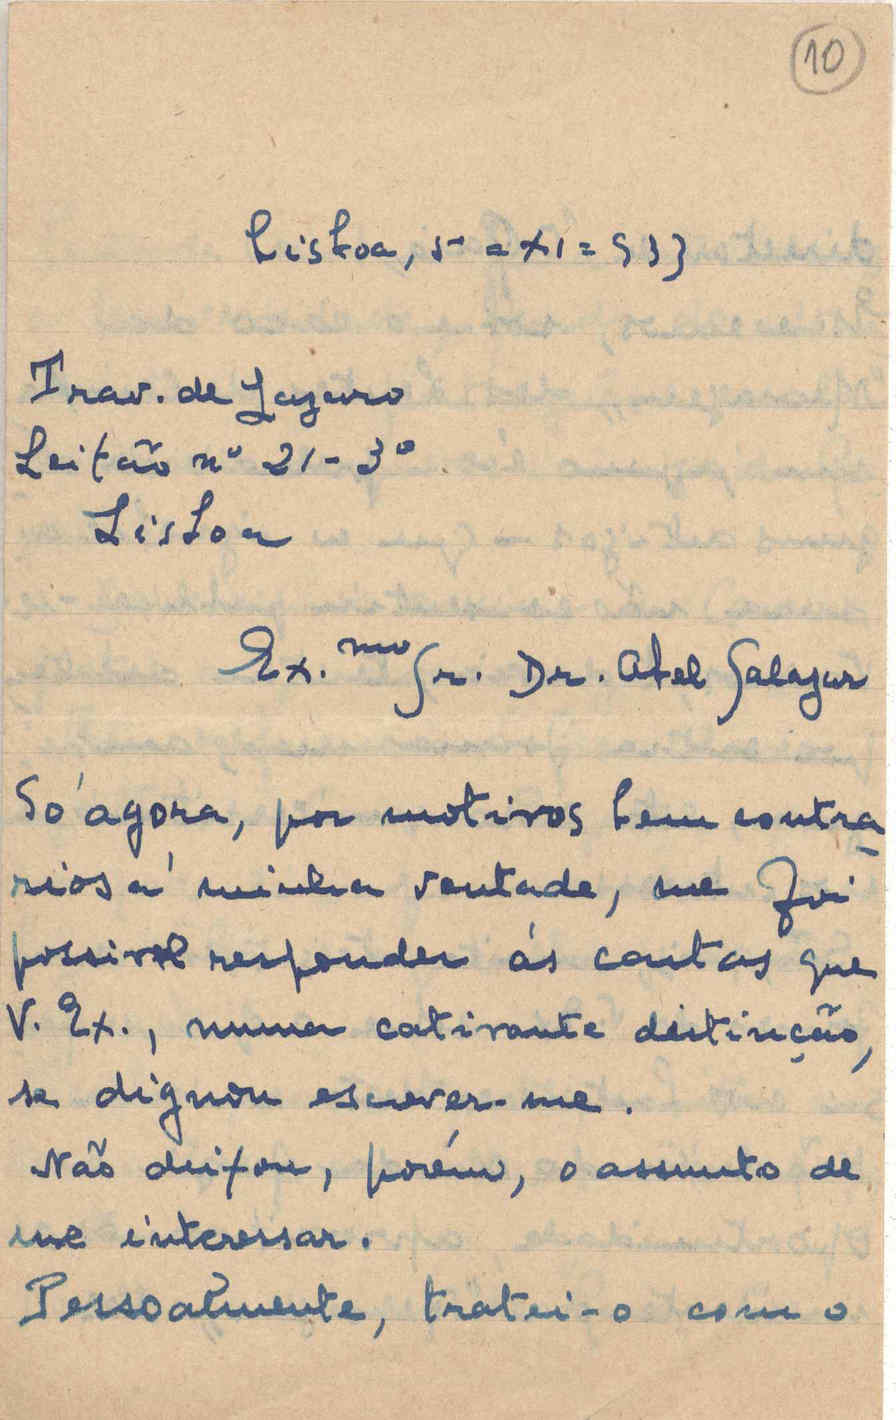 10
Lisboa, 5 = XI = 933
Trav. de Lazaro
Leitão nº 21 - 3º
Lisboa
Ex.mo Sr. Dr. Abel Salazar
Só agora, por motivos bem contra
rios á minha vontade, me foi
possivel responder ás cartas que
V. Ex., numa cativante distinção,
se dignou escrever-me.
Não deixou, porém, o assunto de
me interessar.
Pessoalmente, tratei-o com o